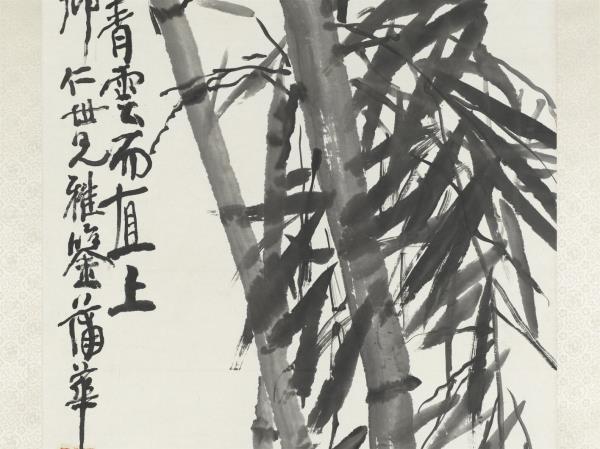 青雲而直上
卿仁世兄雅鑒蒲華